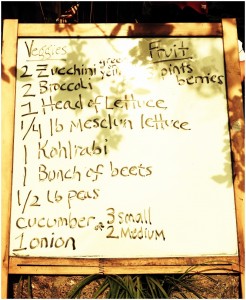 Veggies Fruit
2 Zucchini green yellow 3 pints berries
2 Broccoli
1 Head of Lettuce
1/4 lb Mesclun lettuce
1 Kohlrabi
1 Bunch of beets
1/2 lb peas
cucumber 3 small or 2 Medium
1 onion